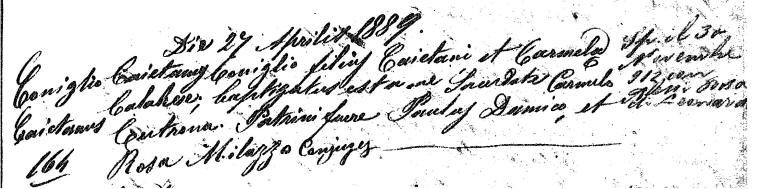 Die 27 Aprilis 1889.
Coniglio Caietanus Coniglio filius Caietani et Carmela
Caietanus Calabrese, baptizatus est a me Sacerdote Carmelo
Cutrona. Patrini fuere Paulus Damico, et
164 Rosa Milazzo Conjuges
Sp. il 30
Novembre
912 con
Rosa
di Leonardo